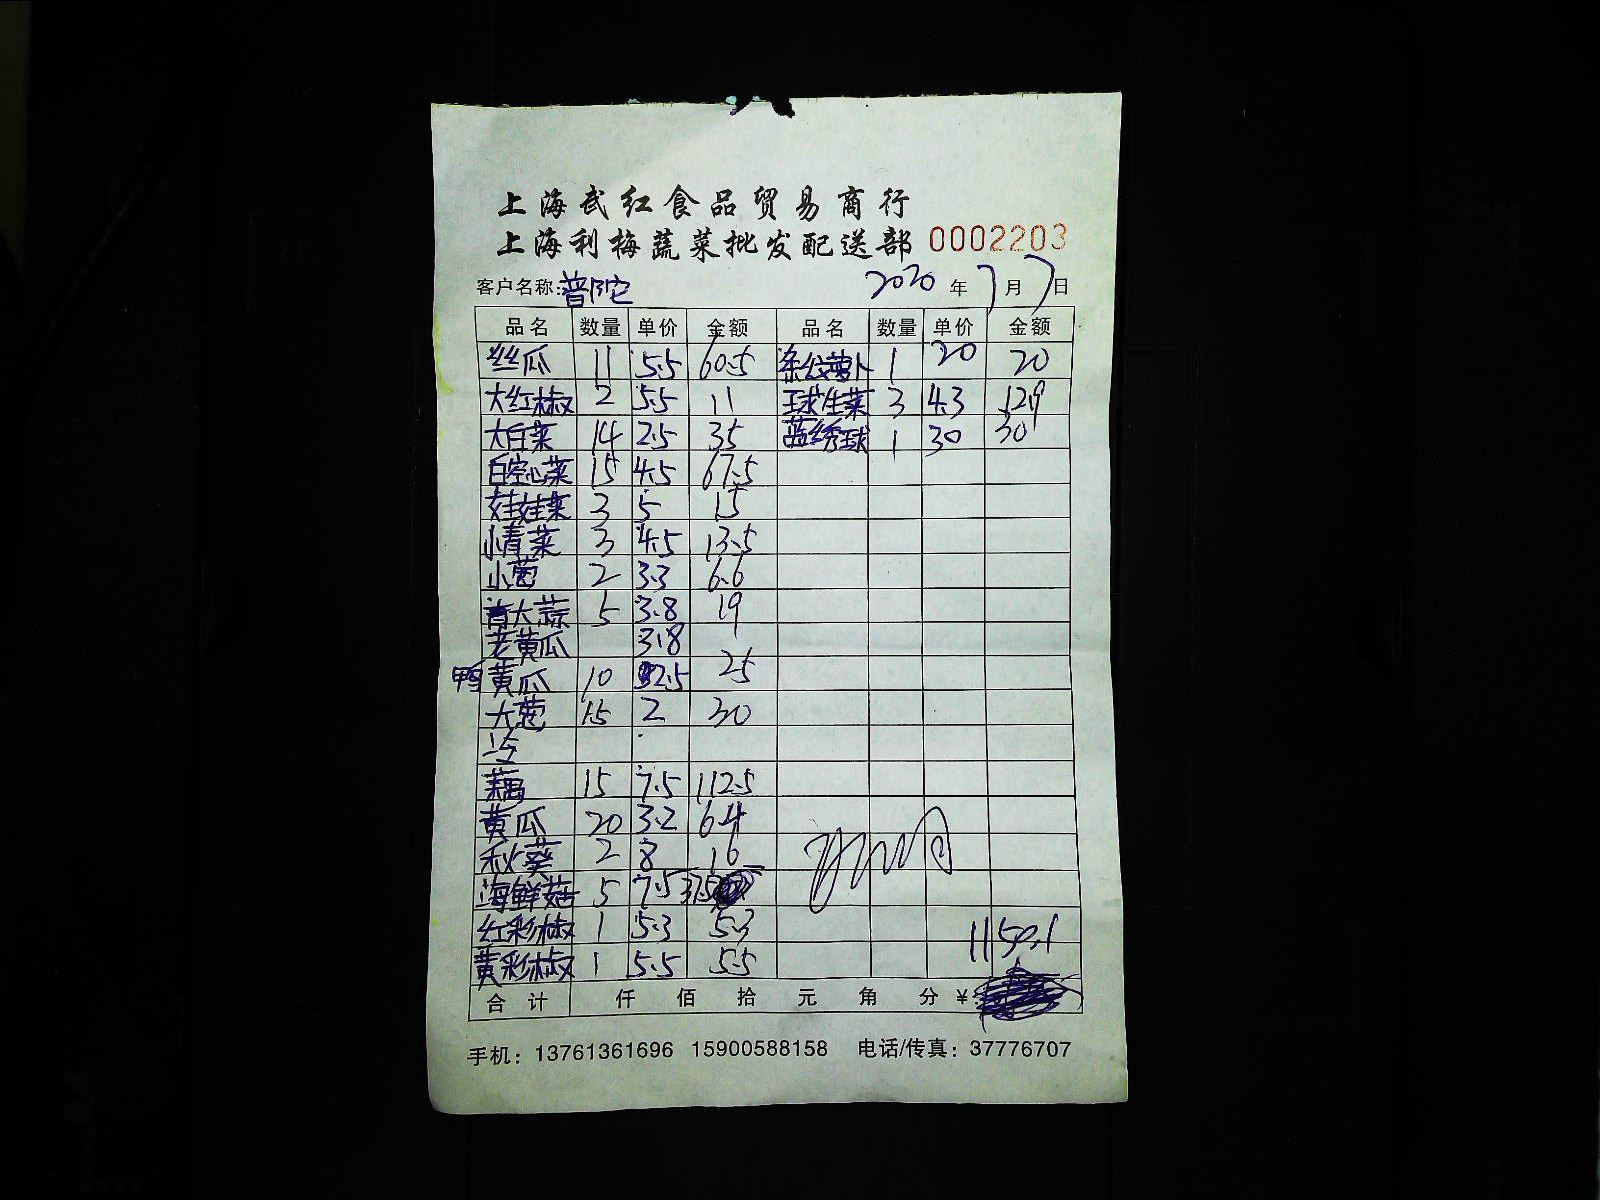 上海武红食品贸易商行
上海利梅蔬菜批发配送部 0002203
客户名称：普陀 2020 年 7 月 7 日
品名 数量 单价 金额 品名 数量 单价 金额
丝瓜 11 5.5 60.5 萝卜 1 20 20
大红椒 2 5.5 11 球生菜 3 4.3 12.9
大白菜 14 2.5 35 蓝绣球 1 30 30
白空心菜 15 4.5 67.5
娃娃菜 3 5 15
小青菜 3 4.5 13.5
小葱 2 3.3 6.6
青大蒜 5 3.8 19
老黄瓜 3.8
鸭黄瓜 10 2.5 25
大葱 15 2 30
藕 15 7.5 112.5
黄瓜 20 3.2 64
秋葵 2 8 16
海鲜菇 5 7.5 37.5
红彩椒 1 5.3 5.3
黄彩椒 1 5.5 5.5
1150.1
合计 仟 佰 拾 元 角 分 ¥:
手机：13761361696 15900588158 电话/传真：37776707